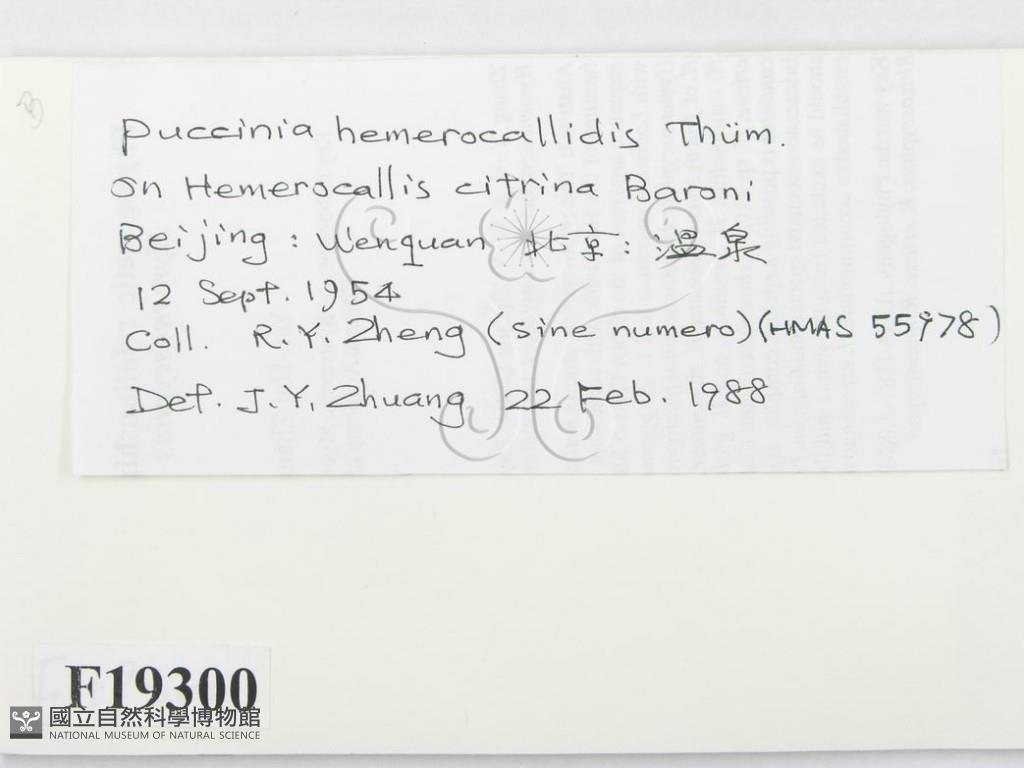 B
Puccinia hemerocallidis Thüm.
on Hemerocallis citrina Baroni
Beijing : Wenquan 北京 : 温泉
12 Sept. 1954
Coll. R.Y. Zheng (sine numero) (HMAS 55978)
Det. J.Y. Zhuang 22 Feb. 1988
F19300
國立自然科學博物館
NATIONAL MUSEUM OF NATURAL SCIENCE